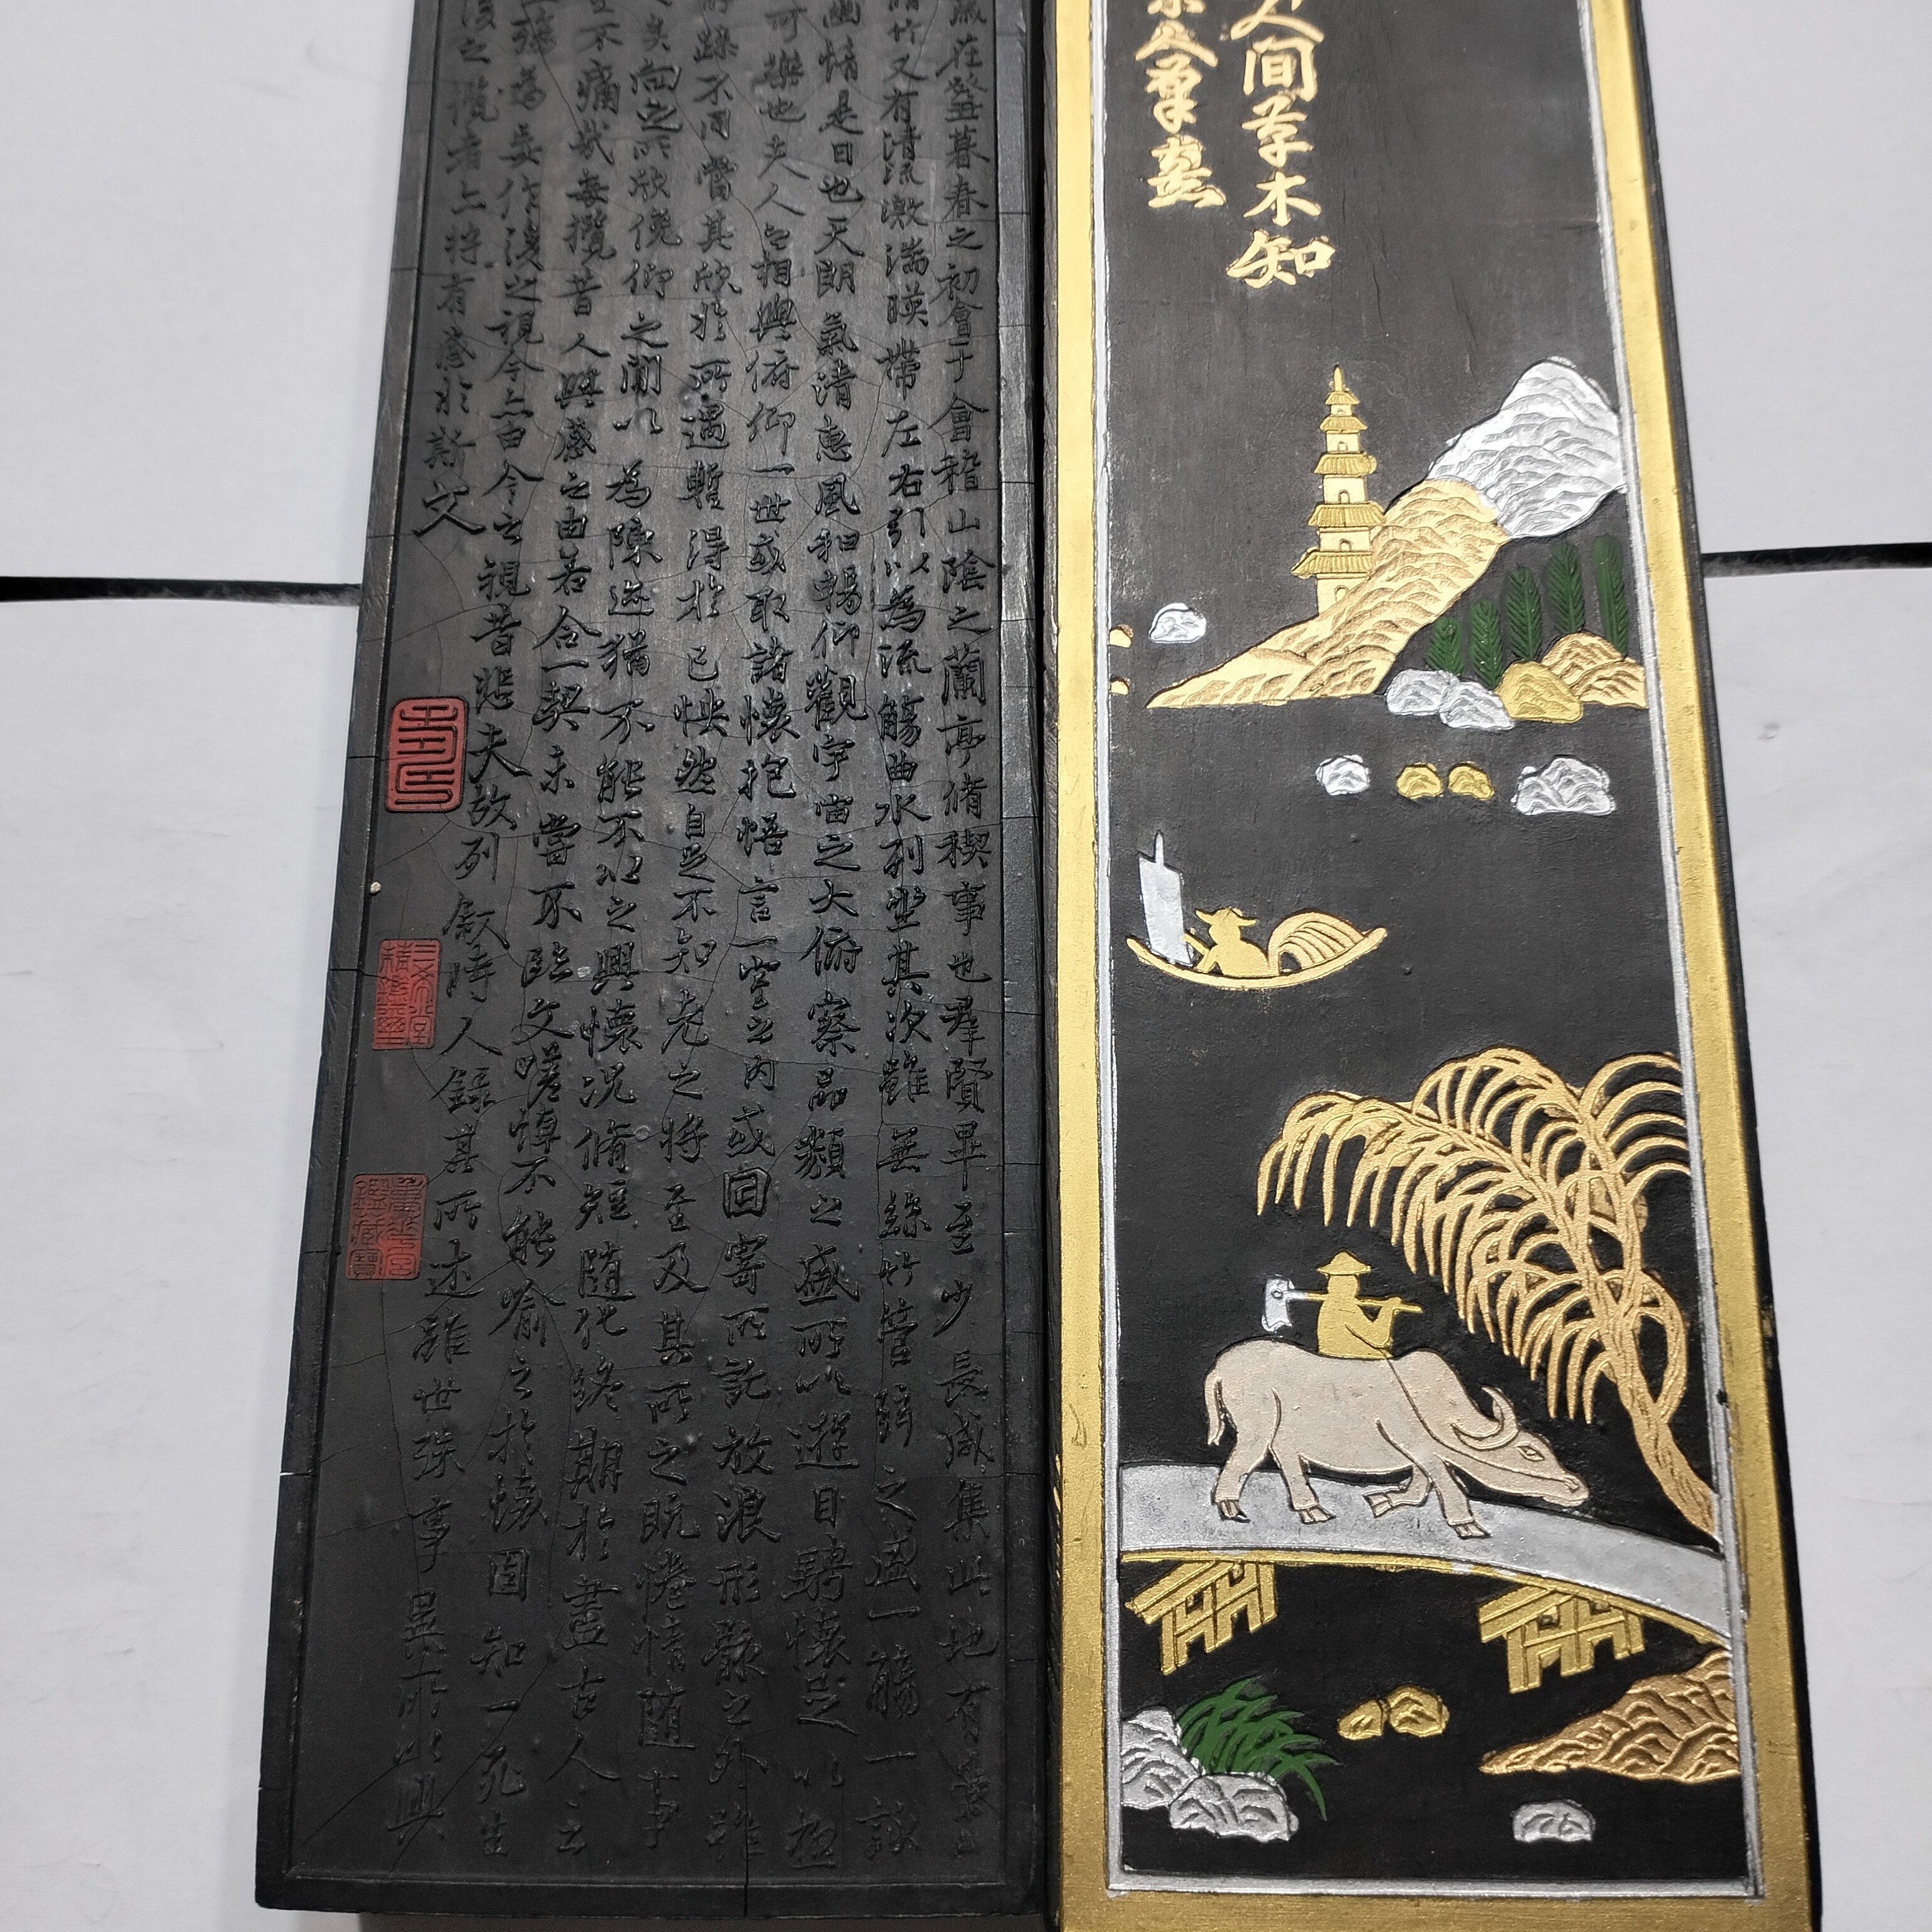 歲在癸丑暮春之初會于會稽山陰之蘭亭脩稧事也羣賢畢至少長咸集此地有崇山
脩竹又有清流激湍暎帶左右引以為流觴曲水列坐其次雖無絲竹管弦之盛一觴一詠
幽情是日也天朗氣清惠風和暢仰觀宇宙之大俯察品類之盛所以遊目騁懷足以極
可樂也夫人之相與俯仰一世或取諸懷抱悟言一室之內或因寄所託放浪形骸之外雖
躁不同當其欣於所遇暫得於己怏然自足不知老之將至及其所之既惓情隨事
矣向之所欣俛仰之閒以為陳迹猶不能不以之興懷況脩短隨化終期於盡古人云
不痛哉每攬昔人興感之由若合一契未嘗不臨文嗟悼不能喻之於懷固知一死生
殤為妄作後之視今亦由今之視昔悲夫故列敘時人錄其所述雖世殊事異所以興
後之攬者亦將有感於斯文
三希堂精鑑璽
人間草木知